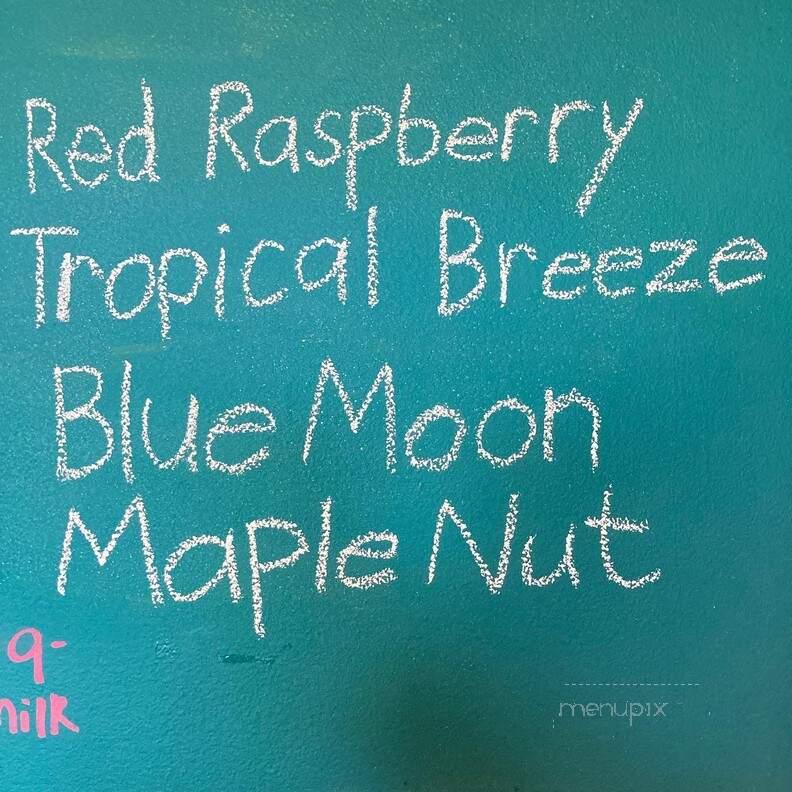 Red Raspberry
Tropical Breeze
Blue Moon
Maple Nut
9-
milk
menupix